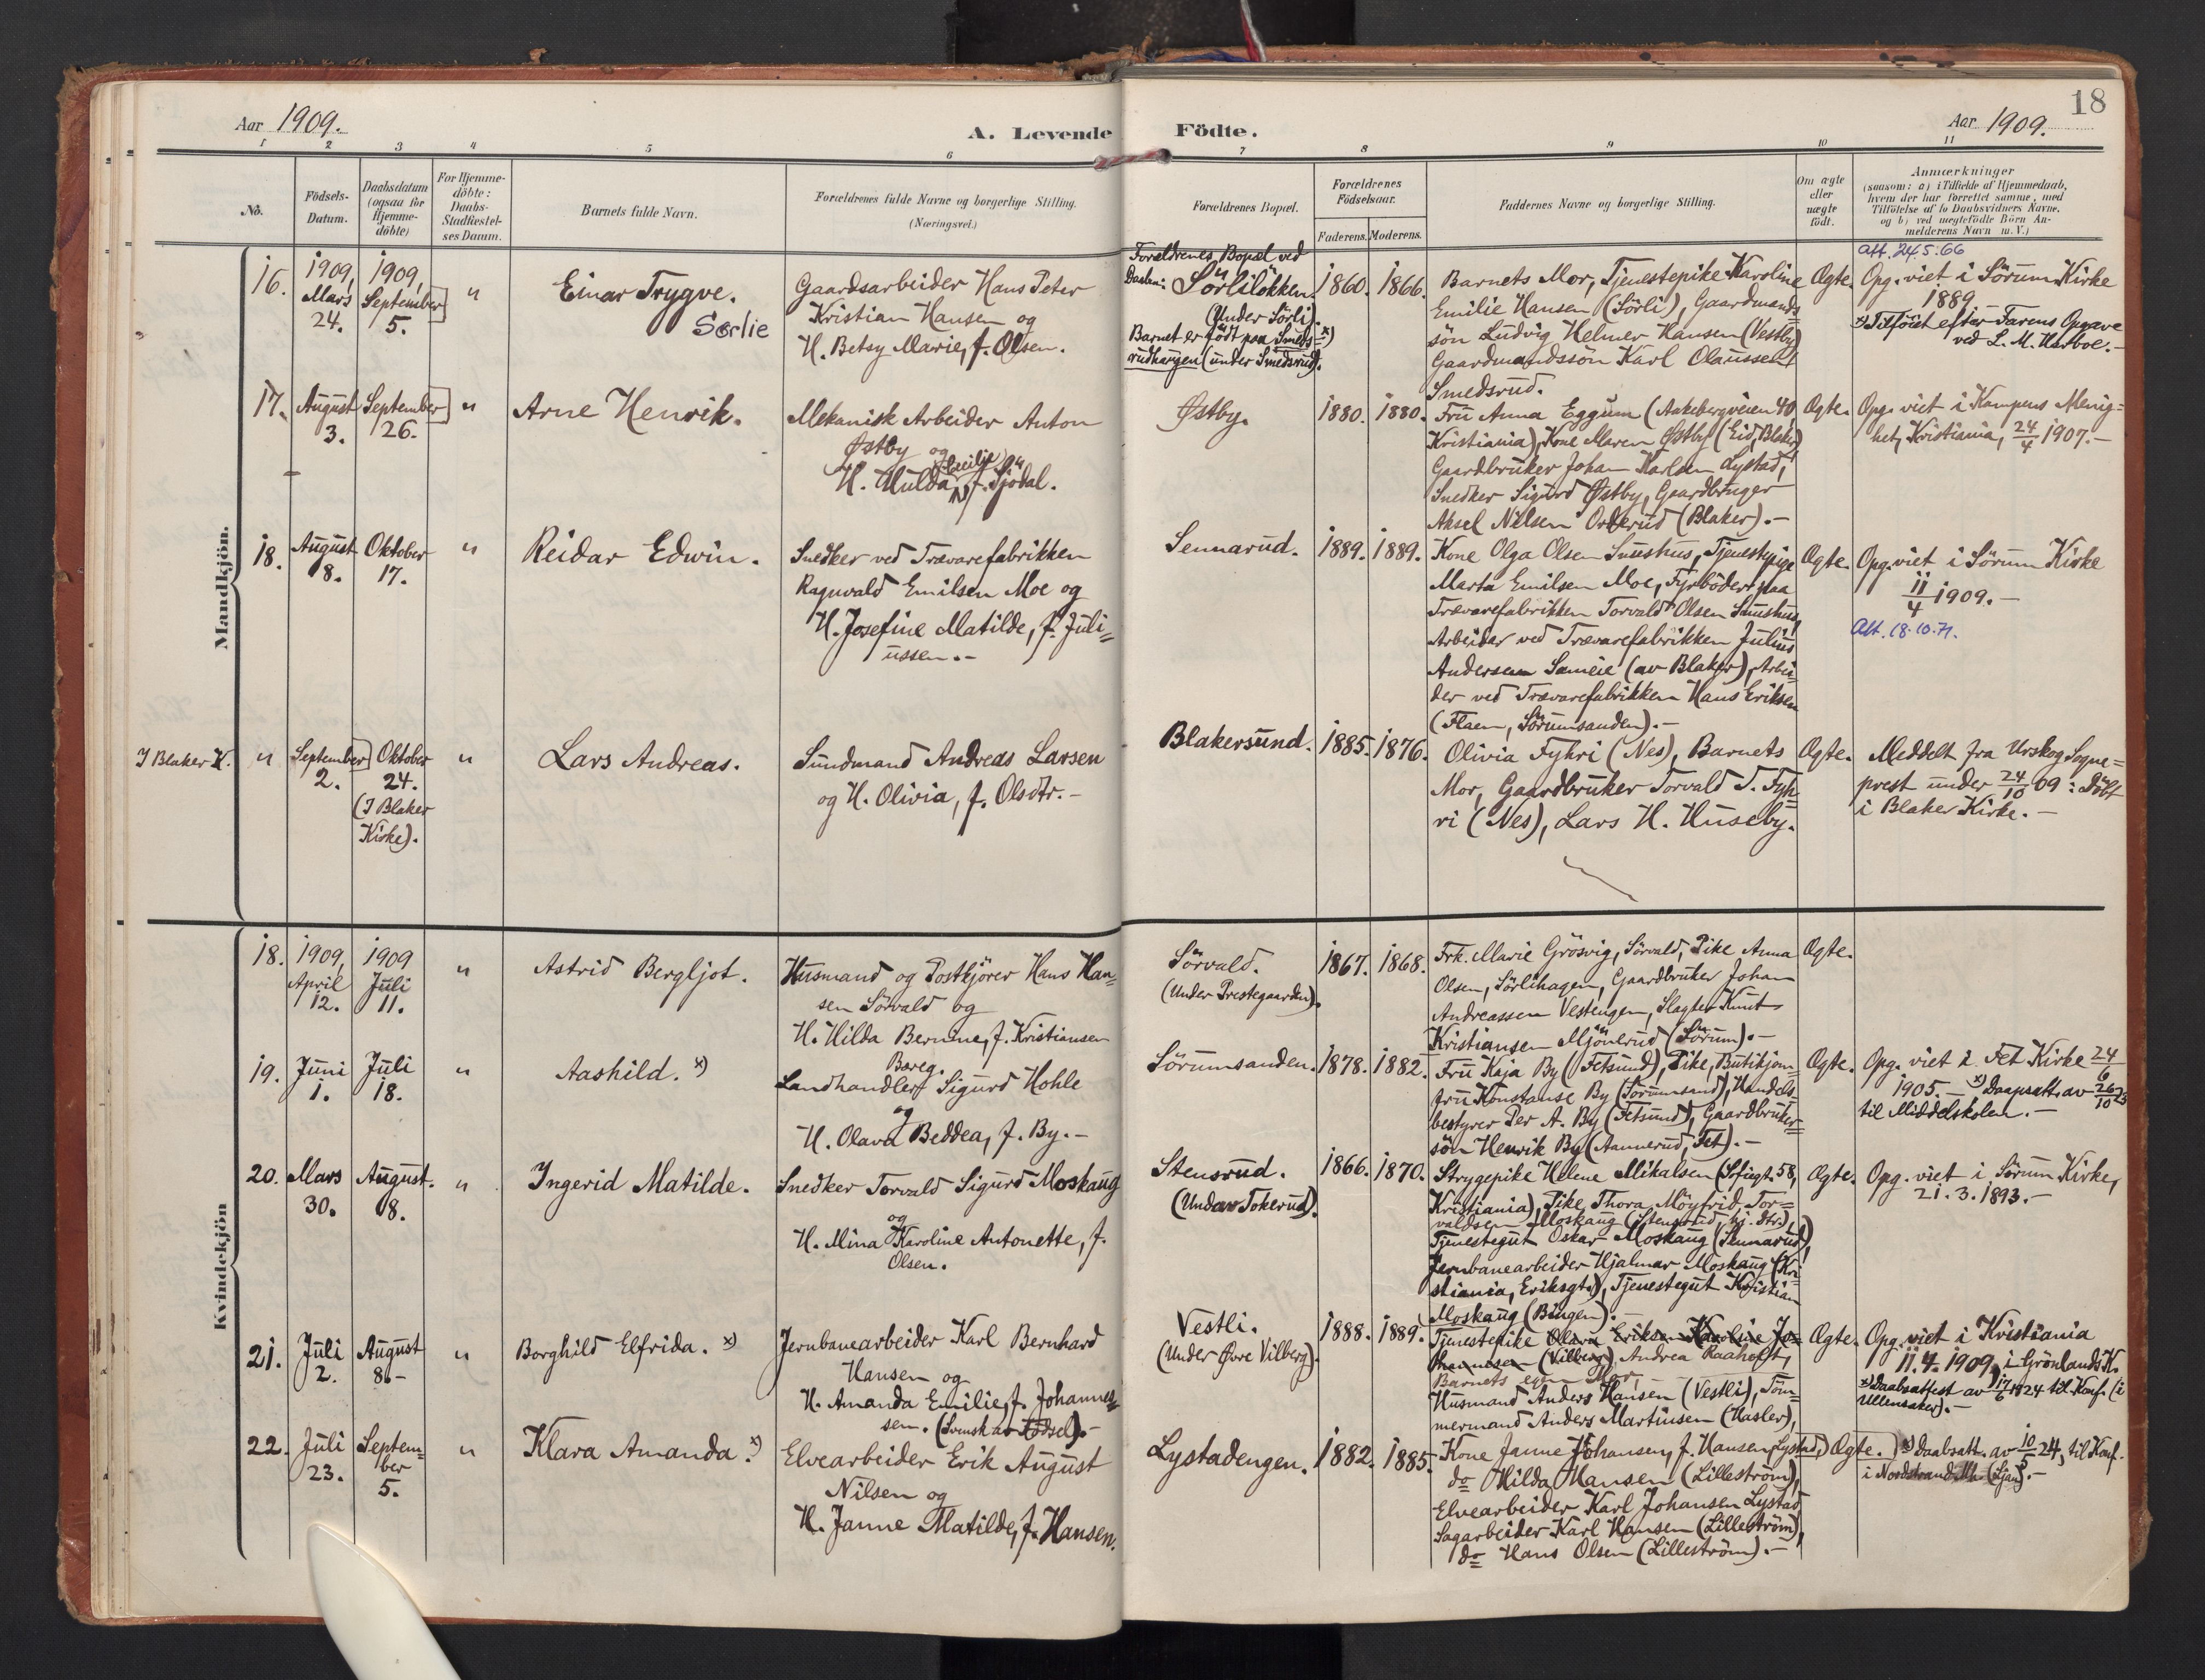 18
Aar 1909.
A. Levende Födte.
Aar 1909.
1 2 3 4 5 6 7 8 9 10 11
No.
Födsels-Datum.
Daabsdatum
(ogsaa for
Hjemme-
döbte)
For Hjemme-
döbte:
Daabs-
Stadfæstel-
ses Datum.
Barnets fulde Navn.
Forældrenes fulde Navne og borgerlige Stilling.
(Næringsvei.)
Forældrenes Bopæl.
Forældrenes
Födselsaar.
Faderens. Moderens.
Faddernes Navne og borgerlige Stilling.
Om ægte
eller
uægte
födt.
Anmærkninger
(saasom: a) i Tilfælde af Hjemmedaab,
hvem der har forrettet samme, med
Tilföielse af to Daabsvidners Navne,
og b) ved uægtefödte Börn An-
melderens Navn m. V.)
Mandkjön.
16.
1909,
Mars
24.
1909,
September
5.
"
Einar Trygve.
Sørlie
Gaardsarbeider Hans Peter
Kristian Hansen og
H. Betsy Marie, f. Olsen.
Foreldrenes Bopæl ved
Daaben: Sörlilökken.
(Under Sörli).
Barnet er födt paa Smeds- x)
rudhaugen (under Smedsrud).
1860. 1866.
Barnets Mor, Tjenestepike Karoline
Emilie Hansen (Sörli), Gaardmands=
sön Ludvig Helmer Hansen (Vestby)
Gaardmandssön Karl Olaussen
Smedsrud.
Ægte.
Att. 24.5.66
Opg. viet i Sörum Kirke
1889.
x) Tilföiet efter Farens Opgave
ved L. M. Harboe.-
17.
August
3.
September
26.
"
Arne Henrik.
Mekanisk Arbeider Anton
Østby og
H. Hulda Cecilie, f. Sjödal.
Østby.
1880. 1880.
Fru Anna Eggum (Aakebergveien 40,
Kristiania), Kone Maren Østby (Eid, Blaker)
Gaardbruker Johan Karlsen Lystad,
Snedker Sigurd Østby, Gaardbruger
Aksel Nilsen Orderud (Blaker).-
Ægte.
Opg. viet i Kampens Menig=
het, Kristiania, 24/4 1907.-
18.
August
8.
Oktober
17.
"
Reidar Edwin.
Snedker ved Trævarefabrikken
Ragnvald Emilsen Moe og
H. Josefine Matilde, f. Juli=
ussen.-
Sennarud.
1889. 1889.
Kone Olga Olsen Snushus, Tjenestepige
Marta Emilsen Moe, Fyrböder paa
Trævarefabrikken Torvald Olsen Snushus,
Arbeider ved Trævarefabrikken Julius
Andersen Sameie (av Blaker), Arbei=
der ved Trævarefabrikken Hans Eriksen
(Flaen, Sörumsanden).-
Ægte.
Opg. viet i Sörum Kirke
11/4 1909.-
Att. 18.10.71.
I Blaker K.
"
September
2.
Oktober
24.
(I Blaker
Kirke).
"
Lars Andreas.
Sundmand Andreas Larsen
og H. Olivia, f. Olsdtr.-
Blakersund.
1885. 1876.
Olivia Fyhri (Nes), Barnets
Mor, Gaardbruker Torvald T. Fyh=
ri (Nes), Lars H. Huseby.
Ægte.
Meddelt fra Urskog Sogne=
prest under 24/10 09: Döbt
i Blaker Kirke.-
Kvindekjön
18.
1909,
April
12.
1909
Juli
11.
"
Astrid Bergljot.
Husmand og Postkjörer Hans Han=
sen Sörvald og
H. Hilda Bernine, f. Kristiansen
Sörvald.
(Under Prestegaarden).
1867. 1868.
Frk. Marie Grösvig, Sörvald, Pike Anna
Olsen, Sörlihagen, Gaardbruker Johan
Andreassen Vestengen, Slagter Knut
Kristiansen Mjönerud (Sörum).-
Ægte.
19.
Juni
1.
Juli
18.
"
Aashild. x)
Boreg.
Landhandler Sigurd Hohle
og
H. Olava Beddea, f. By.-
Sörumsanden.
1878. 1882.
Fru Kaja By (Fetsund), Pike, Butikjom=
fru Konstanse By (Sörumsand), Handels=
bestyrer Per A. By (Fetsund), Gaardbruker=
sön Henrik By (Aamerud, Fet).-
Ægte.
Opg. viet i Fet Kirke 24/6
1905.- x) Daapsatt. av 26/10 23
til Middelskolen.-
20.
Mars
30.
August.
8.
"
Ingerid Matilde.
Snedker Torvald Sigurd Moskaug
og
H. Mina Karoline Antonette, f.
Olsen.
Stensrud.
(Under Tokerud).
1866. 1870.
Strygepike Helene Mikalsen (Sofiegt. 58,
Kristiania), Pike Thora Möyfrid Tor=
valdsen Moskaug (Stensrud, hj. dtr.),
Tjenestegut Oskar Moskaug (Sennarud),
Jernbanearbeider Hjalmar Moskaug (Kri=
stiania, Eriksgt.), Tjenestegut Kristian
Moskaug (Bingen).-
Ægte.
Opg. viet i Sörum Kirke,
21.3.1893.-
21.
Juli
2.
August
8.-
"
Borghild Elfrida. x)
Jernbanearbeider Karl Bernhard
Hansen og
H. Amanda Emilie, f. Johannes=
sen. (Svensk av Födsel).-
Vestli.
(Under Øvre Vilberg).
1888. 1889.
Tjenestepike Olava Eriksen Karoline Jo=
hannesen (Vilberg), Andrea Raaholt,
Barnets egen Mor,
Husmand Anders Hansen (Vestli), Töm=
mermand Anders Martinsen (Hasler),
Ægte.
Opg. viet i Kristiania
11.4.1909, i Grönlands K.
x) Daabsattest av 17/6 1924 til Konf. (i
Ullensaker).-
22.
Juli
23.
Septem=
ber
5.
"
Klara Amanda. x)
Elvearbeider Erik August
Nilsen og
H. Janne Matilde, f. Hansen.
Lystadengen.
1882. 1885.
Kone Janne Johansen, f. Hansen, (Lystad,)
do Hilda Hansen (Lilleström),
Elvearbeider Karl Johansen Lystad
Sagarbeider Karl Hansen (Lilleström),
do Hans Olsen (Lilleström).-
Ægte.
x) Daabsatt. av 10/5 24, til Konf.
i Nordstrand Mh. (Ljan).-